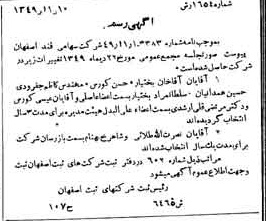 شماره ۱۶۵۴ رش ۱۳۴۹٫۱۱٫۱۰
آگهی رسمی
بموجب نامه شماره ۳۳۸۳ر۱ر۴۹٫۱۱ شرکت سهامی قند اصفهان
پیوست صورتجلسه مجمع عمومی مورخ ۲۱ دیماه ۱۳۴۹ تغییرات زیر در
شرکت حاصل شده است
۱ آقایان آقاخان بختیار حسن کورس مهندس کاظم جفرودی
حسین همدانیان سلطانمراد بختیار بسمت اعضاء اصلی و آقایان عیسی کورس
ودکتر مرتضی قلی ارشدی بسمت اعضاء علی البدل هیئت مدیره برای مدت ۳ سال
انتخاب گردیده‌اند
۲ آقایان نصرت‌الله طلائی وشاهرخ بهنام بسمت بازرسان شرکت
برای مدت یکسال انتخاب شده‌اند
مراتب ذیل شماره ۶۰۲ در دفتر ثبت شرکت های ثبت اصفهان ثبت
وجهت اطلاع عموم آگهی میشود
رئیس ثبت شرکتهای ثبت اصفهان
۶۴۶۵ش ح ۱۰۷